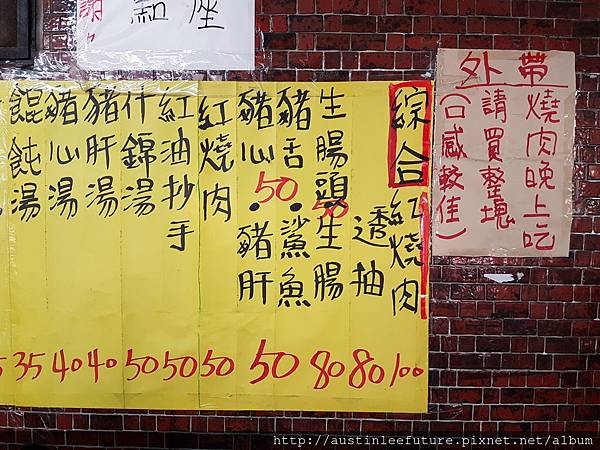 點座
外帶
燒肉晚上吃
請買整塊
(口感較佳)
綜合紅燒肉 100
透抽 80
生腸頭 50 生腸 80
豬舌 50 鯊魚
豬心 • 豬肝 50
紅燒肉 50
紅油抄手 50
什錦湯 50
豬肝湯 40
豬心湯 40
餛飩湯 35
http://austinleefuture.pixnet.net/album